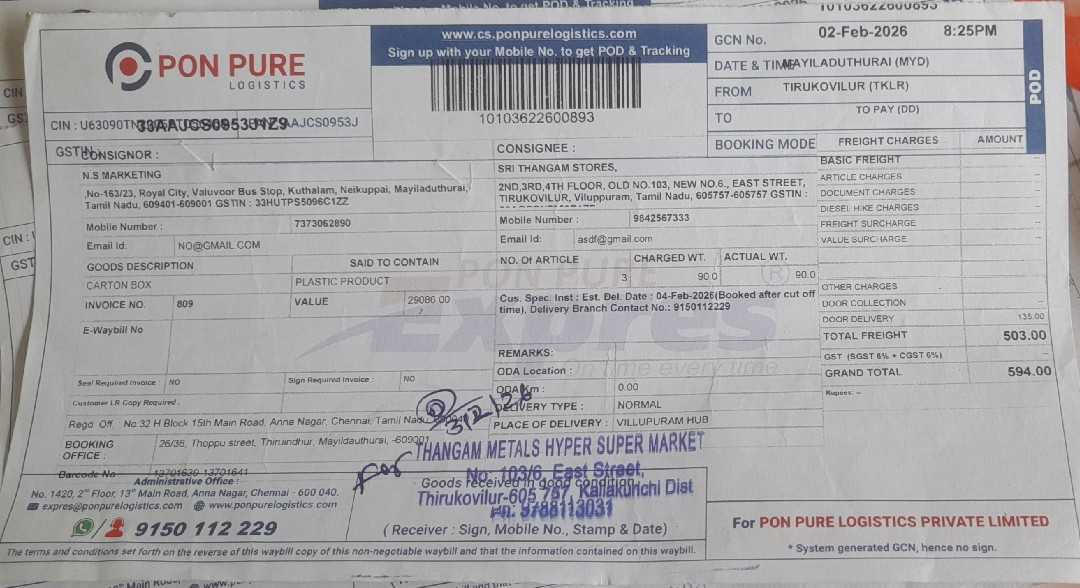 10103622600893
PON PURE
LOGISTICS
www.cs.ponpurelogistics.com
Sign up with your Mobile No. to get POD & Tracking
10103622600893
GCN No.
02-Feb-2026 8:25PM
DATE & TIME
MAYILADUTHURAI (MYD)
FROM
TIRUKOVILUR (TKLR)
TO
TO PAY (DD)
BOOKING MODE
POD
CIN : U63090TN
33AAJCS0953J1Z9
AAJCS0953J
GSTIN
CONSIGNOR :
N.S MARKETING
,No-163/23, Royal City, Valuvoor Bus Stop, Kuthalam, Neikuppai, Mayiladuthurai,
Tamil Nadu, 609401-609001 GSTIN : 33HUTPS5096C1ZZ
Mobile Number : 7373062890
Email Id: NO@GMAIL.COM
GOODS DESCRIPTION SAID TO CONTAIN
CARTON BOX PLASTIC PRODUCT
INVOICE NO. 809 VALUE 29086.00
E-Waybill No
Seal Required Invoice : NO Sign Required Invoice : NO
Customer LR Copy Required :
CONSIGNEE :
SRI THANGAM STORES,
2ND,3RD,4TH FLOOR, OLD NO.103, NEW NO.6., EAST STREET,
TIRUKOVILUR, Viluppuram, Tamil Nadu, 605757-605757 GSTIN :
Mobile Number : 9842567333
Email Id: asdf@gmail.com
NO. OF ARTICLE CHARGED WT. ACTUAL WT.
3 90.0 90.0
Cus. Spec. Inst : Est. Del. Date : 04-Feb-2026(Booked after cut off
time), Delivery Branch Contact No.: 9150112229
PON PURE
Expres
on time every time
REMARKS:
ODA Location :
ODA Km : 0.00
DELIVERY TYPE : NORMAL
PLACE OF DELIVERY : VILLUPURAM HUB
FREIGHT CHARGES AMOUNT
BASIC FREIGHT
ARTICLE CHARGES
DOCUMENT CHARGES
DIESEL HIKE CHARGES
FREIGHT SURCHARGE
VALUE SURCHARGE
OTHER CHARGES
DOOR COLLECTION
DOOR DELIVERY 135.00
TOTAL FREIGHT 503.00
GST (SGST 6% + CGST 6%)
GRAND TOTAL 594.00
Rupees: --
Regd. Off. No.32 H Block 15th Main Road, Anne Nagar, Chennai, Tamil Nadu
BOOKING OFFICE : 26/36, Thoppu street, Thiruindhur, Mayildauthurai, -609001
Barcode No 13701639-13701641
Administrative Office :
No. 1420, 2nd Floor, 13th Main Road, Anna Nagar, Chennai - 600 040.
expres@ponpurelogistics.com www.ponpurelogistics.com
9150 112 229
3/2/26
For
THANGAM METALS HYPER SUPER MARKET
No: 103/6, East Street,
Goods received in good condition
Thirukovilur-605 757, Kallakurichi Dist
Ph: 9788113031
( Receiver : Sign, Mobile No., Stamp & Date)
For PON PURE LOGISTICS PRIVATE LIMITED
* System generated GCN, hence no sign.
The terms and conditions set forth on the reverse of this waybill copy of this non-negotiable waybill and that the information contained on this waybill.